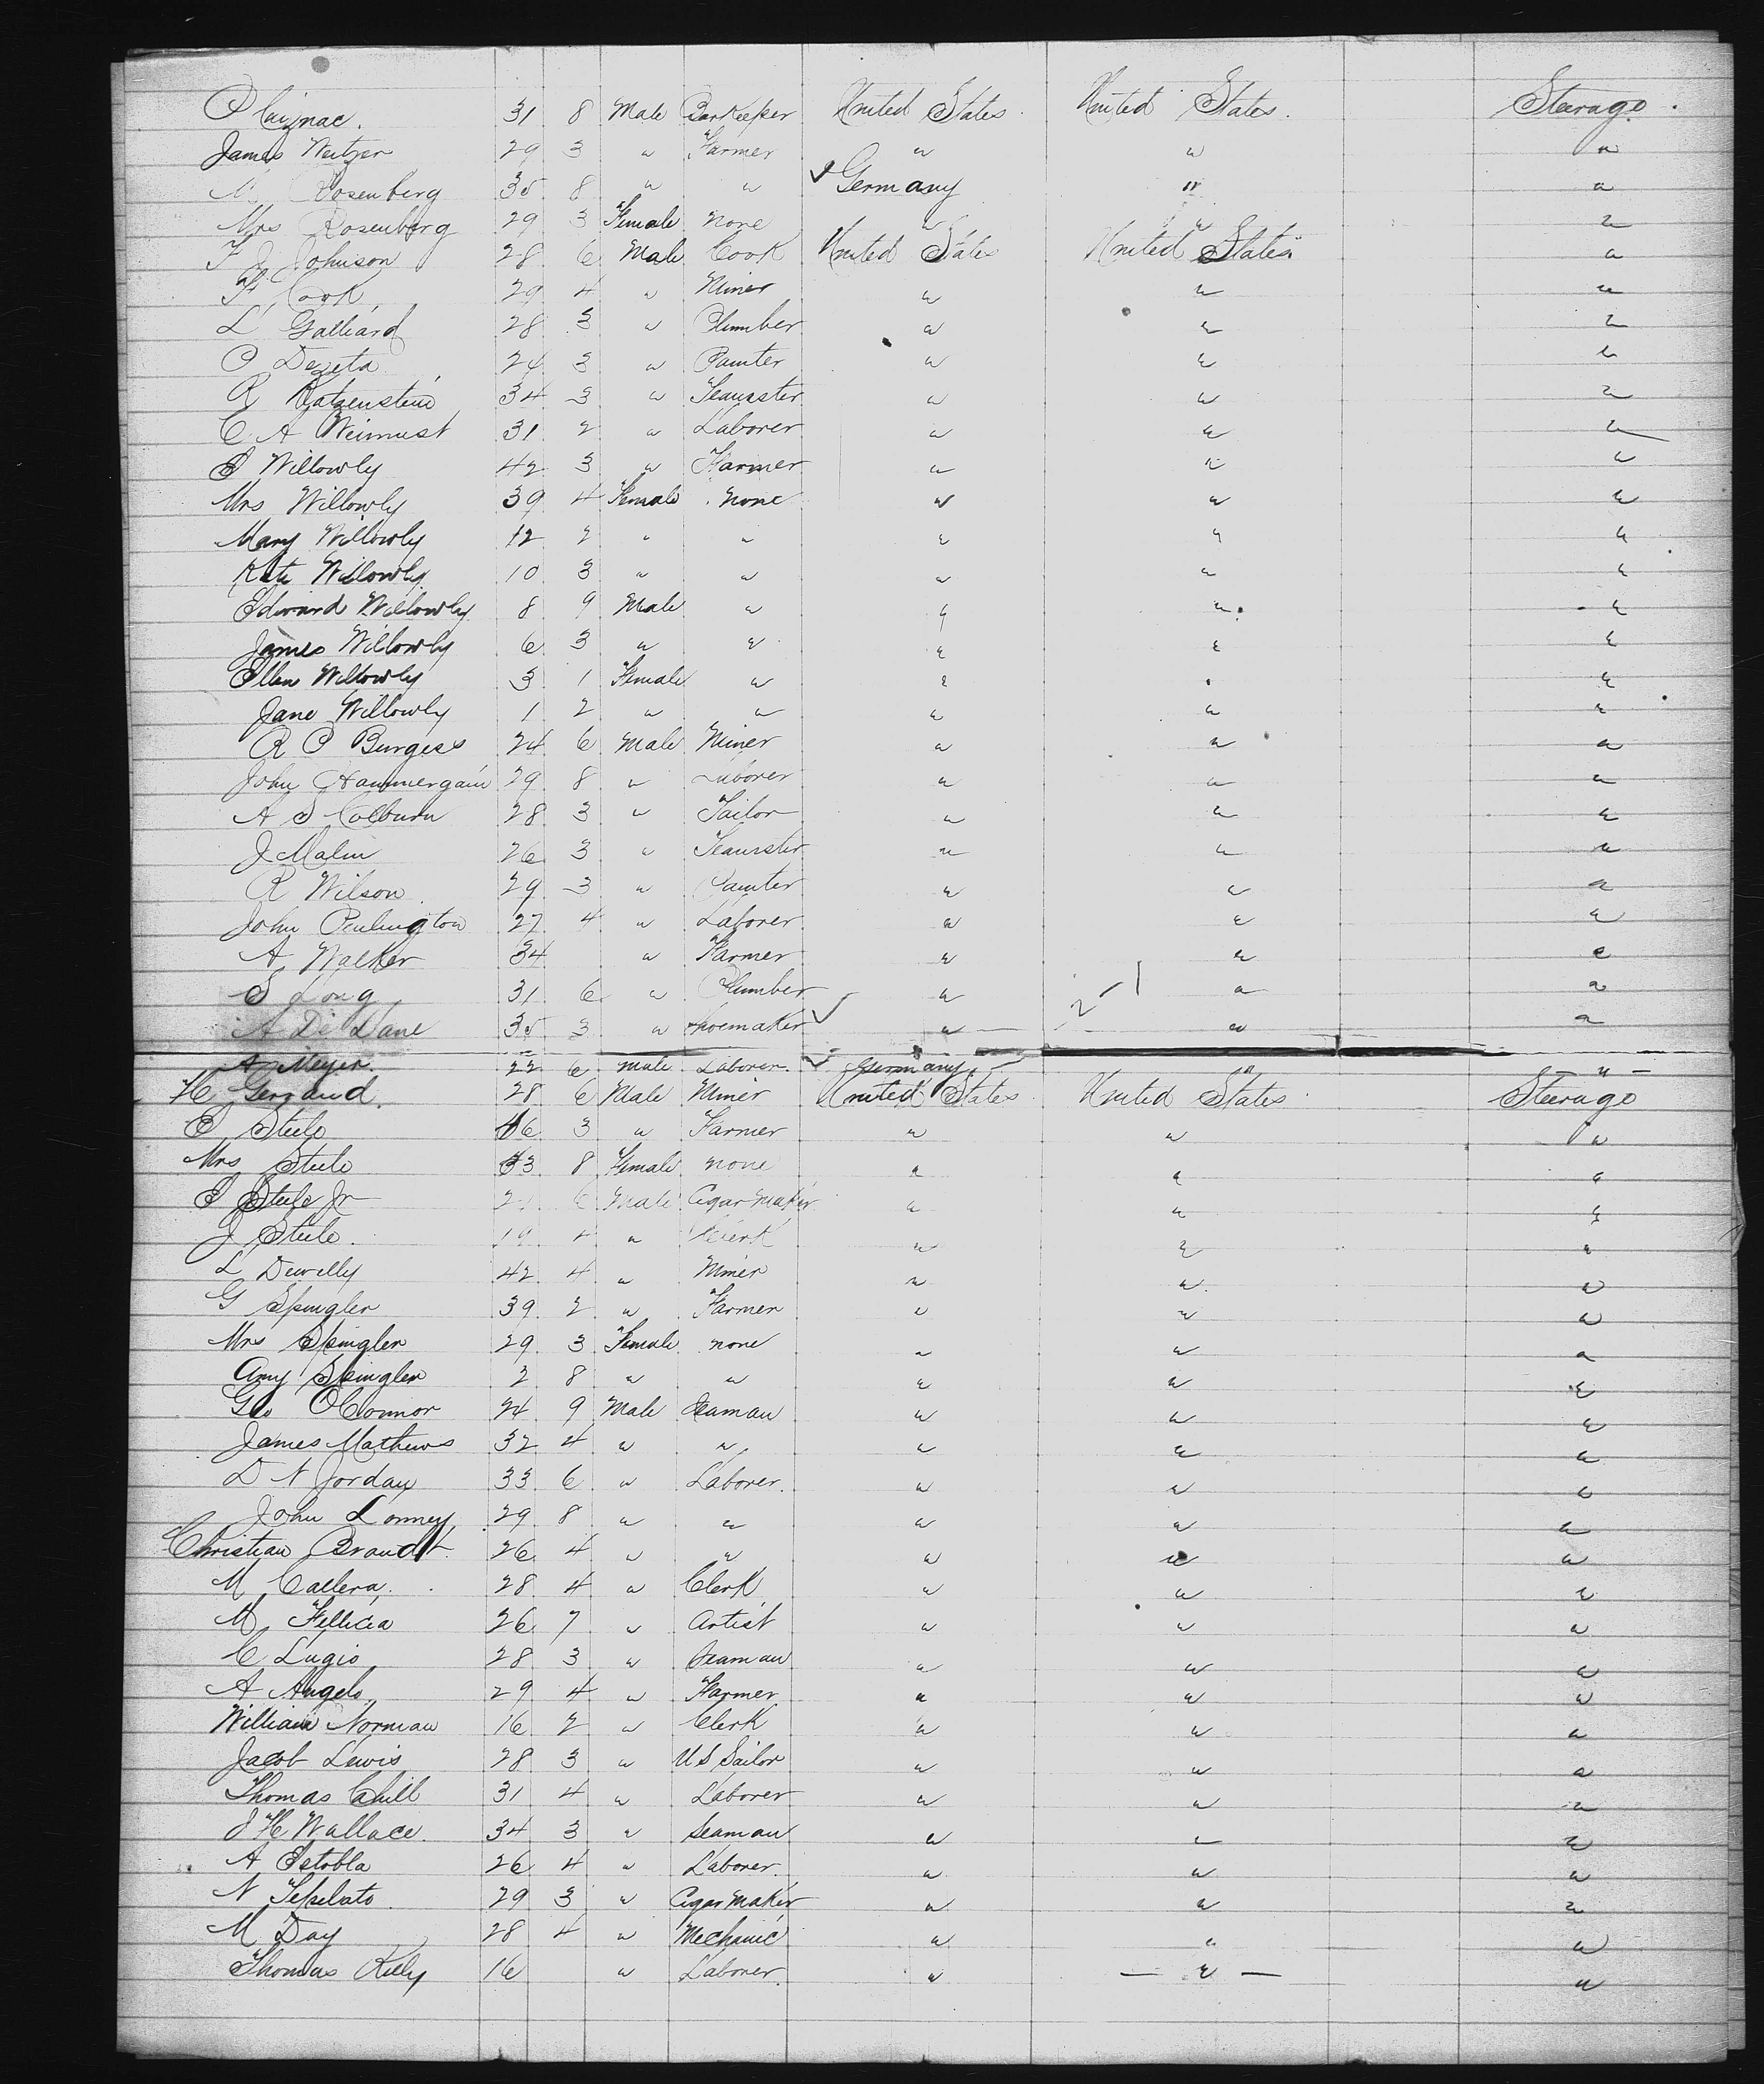 31 8 Male Barkeeper United States United States Steerage
James 29 3 " Farmer " " "
M Rosenberg 35 8 " " ✓ Germany " "
Mrs Rosenberg 29 3 Female none " " "
F J Johnson 28 6 Male Cook United States United States "
F Cook 29 4 " Miner " " "
L Galliard 28 3 " Plumber " " "
24 3 " Painter " " "
R Katzenstein 34 3 " Teamster " " "
C A Weimust 31 2 " Laborer " " "
E Willowly 42 3 " Farmer " " "
Mrs Willowly 39 4 Female none " " "
Mary Willowly 12 2 " " " " "
Kate Willowly 10 3 " " " " "
Edward Willowly 8 9 Male " " " "
James Willowly 6 3 " " " " "
Ellen Willowly 3 1 Female " " " "
Jane Willowly 1 2 " " " " "
R P Burgess 24 6 Male Miner " " "
John 29 8 " Laborer " " "
A S Colburn 28 3 " Tailor " " "
J Malin 26 3 " Teamster " " "
R Wilson 29 3 " Painter " " "
John 27 4 " Laborer " " "
A Walker 34 " Farmer " " "
S Long 31 6 " Plumber " " "
A De Lane 35 3 " Shoemaker ✓ " " "
A Meyer 22 6 Male Laborer ✓ Germany " "
H Gerraud 28 6 Male Miner United States United States Steerage
E Steele 46 3 " Farmer " " "
Mrs Steele 43 8 Female none " " "
E Steele Jr 6 Male Cigar Maker " " "
J Steele 19 4 " Clerk " " "
L Dewelly 42 4 " Miner " " "
G Spingler 39 2 " Farmer " " "
Mrs Spingler 29 3 Female none " " "
Amy Spingler 2 8 " " " " "
Geo O'Connor 24 9 Male Seaman " " "
James Mathews 32 4 " " " " "
D N Jordan 33 6 " Laborer " " "
John Lonney 29 8 " " " " "
Christian Brandt 26 4 " " " " "
M Callera 28 4 " Clerk " " "
M Fellicia 26 7 " Artist " " "
C Lugio 28 3 " Seaman " " "
A Angelo 29 4 " Farmer " " "
William Norman 16 2 " Clerk " " "
Jacob Lewis 28 3 " U S Sailor " " "
Thomas Cahill 31 4 " Laborer " " "
J H Wallace 34 3 " Seaman " " "
A Estobla 26 4 " Laborer " " "
N 29 3 " Cigar Maker " " "
M Day 28 4 " Mechanic " " "
Thomas Kelly 16 " Laborer " " "